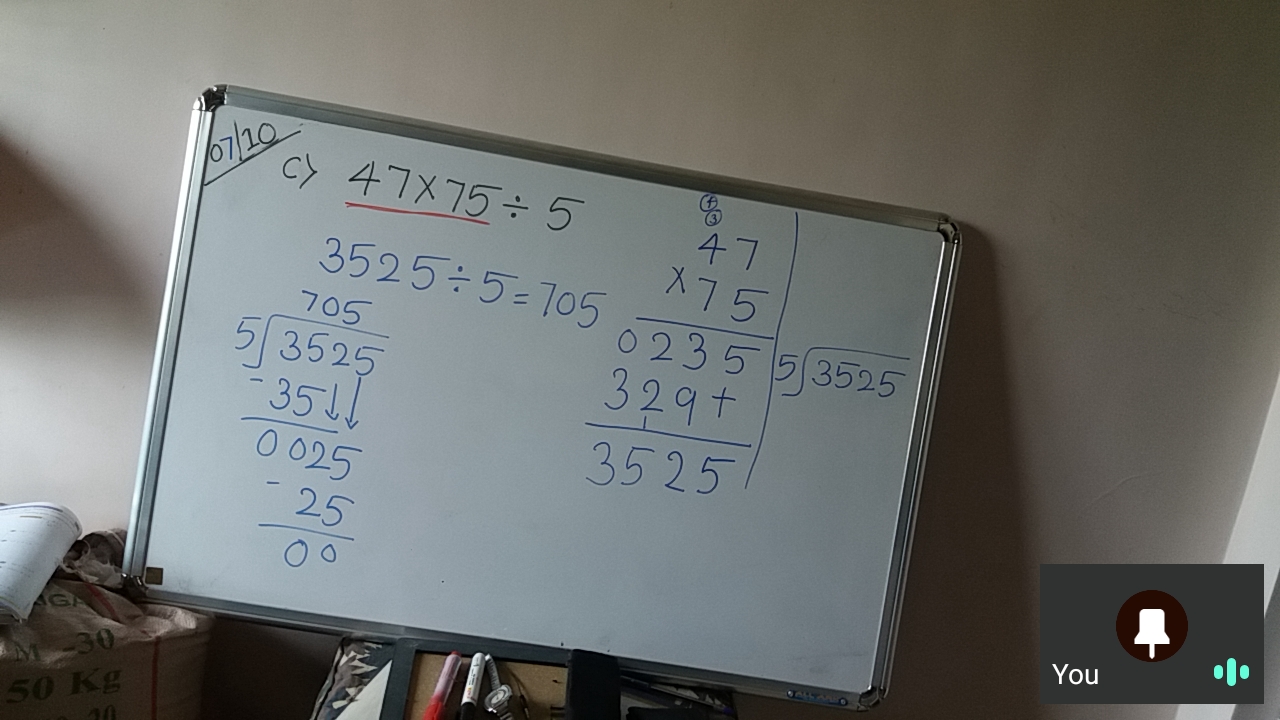 07/10
c) 47×75÷5
3525÷5=705
705
5)3525
-35↓↓
0025
-25
00
47
×75
0235
329+
1
3525
5)3525
M -30
50 Kg
You